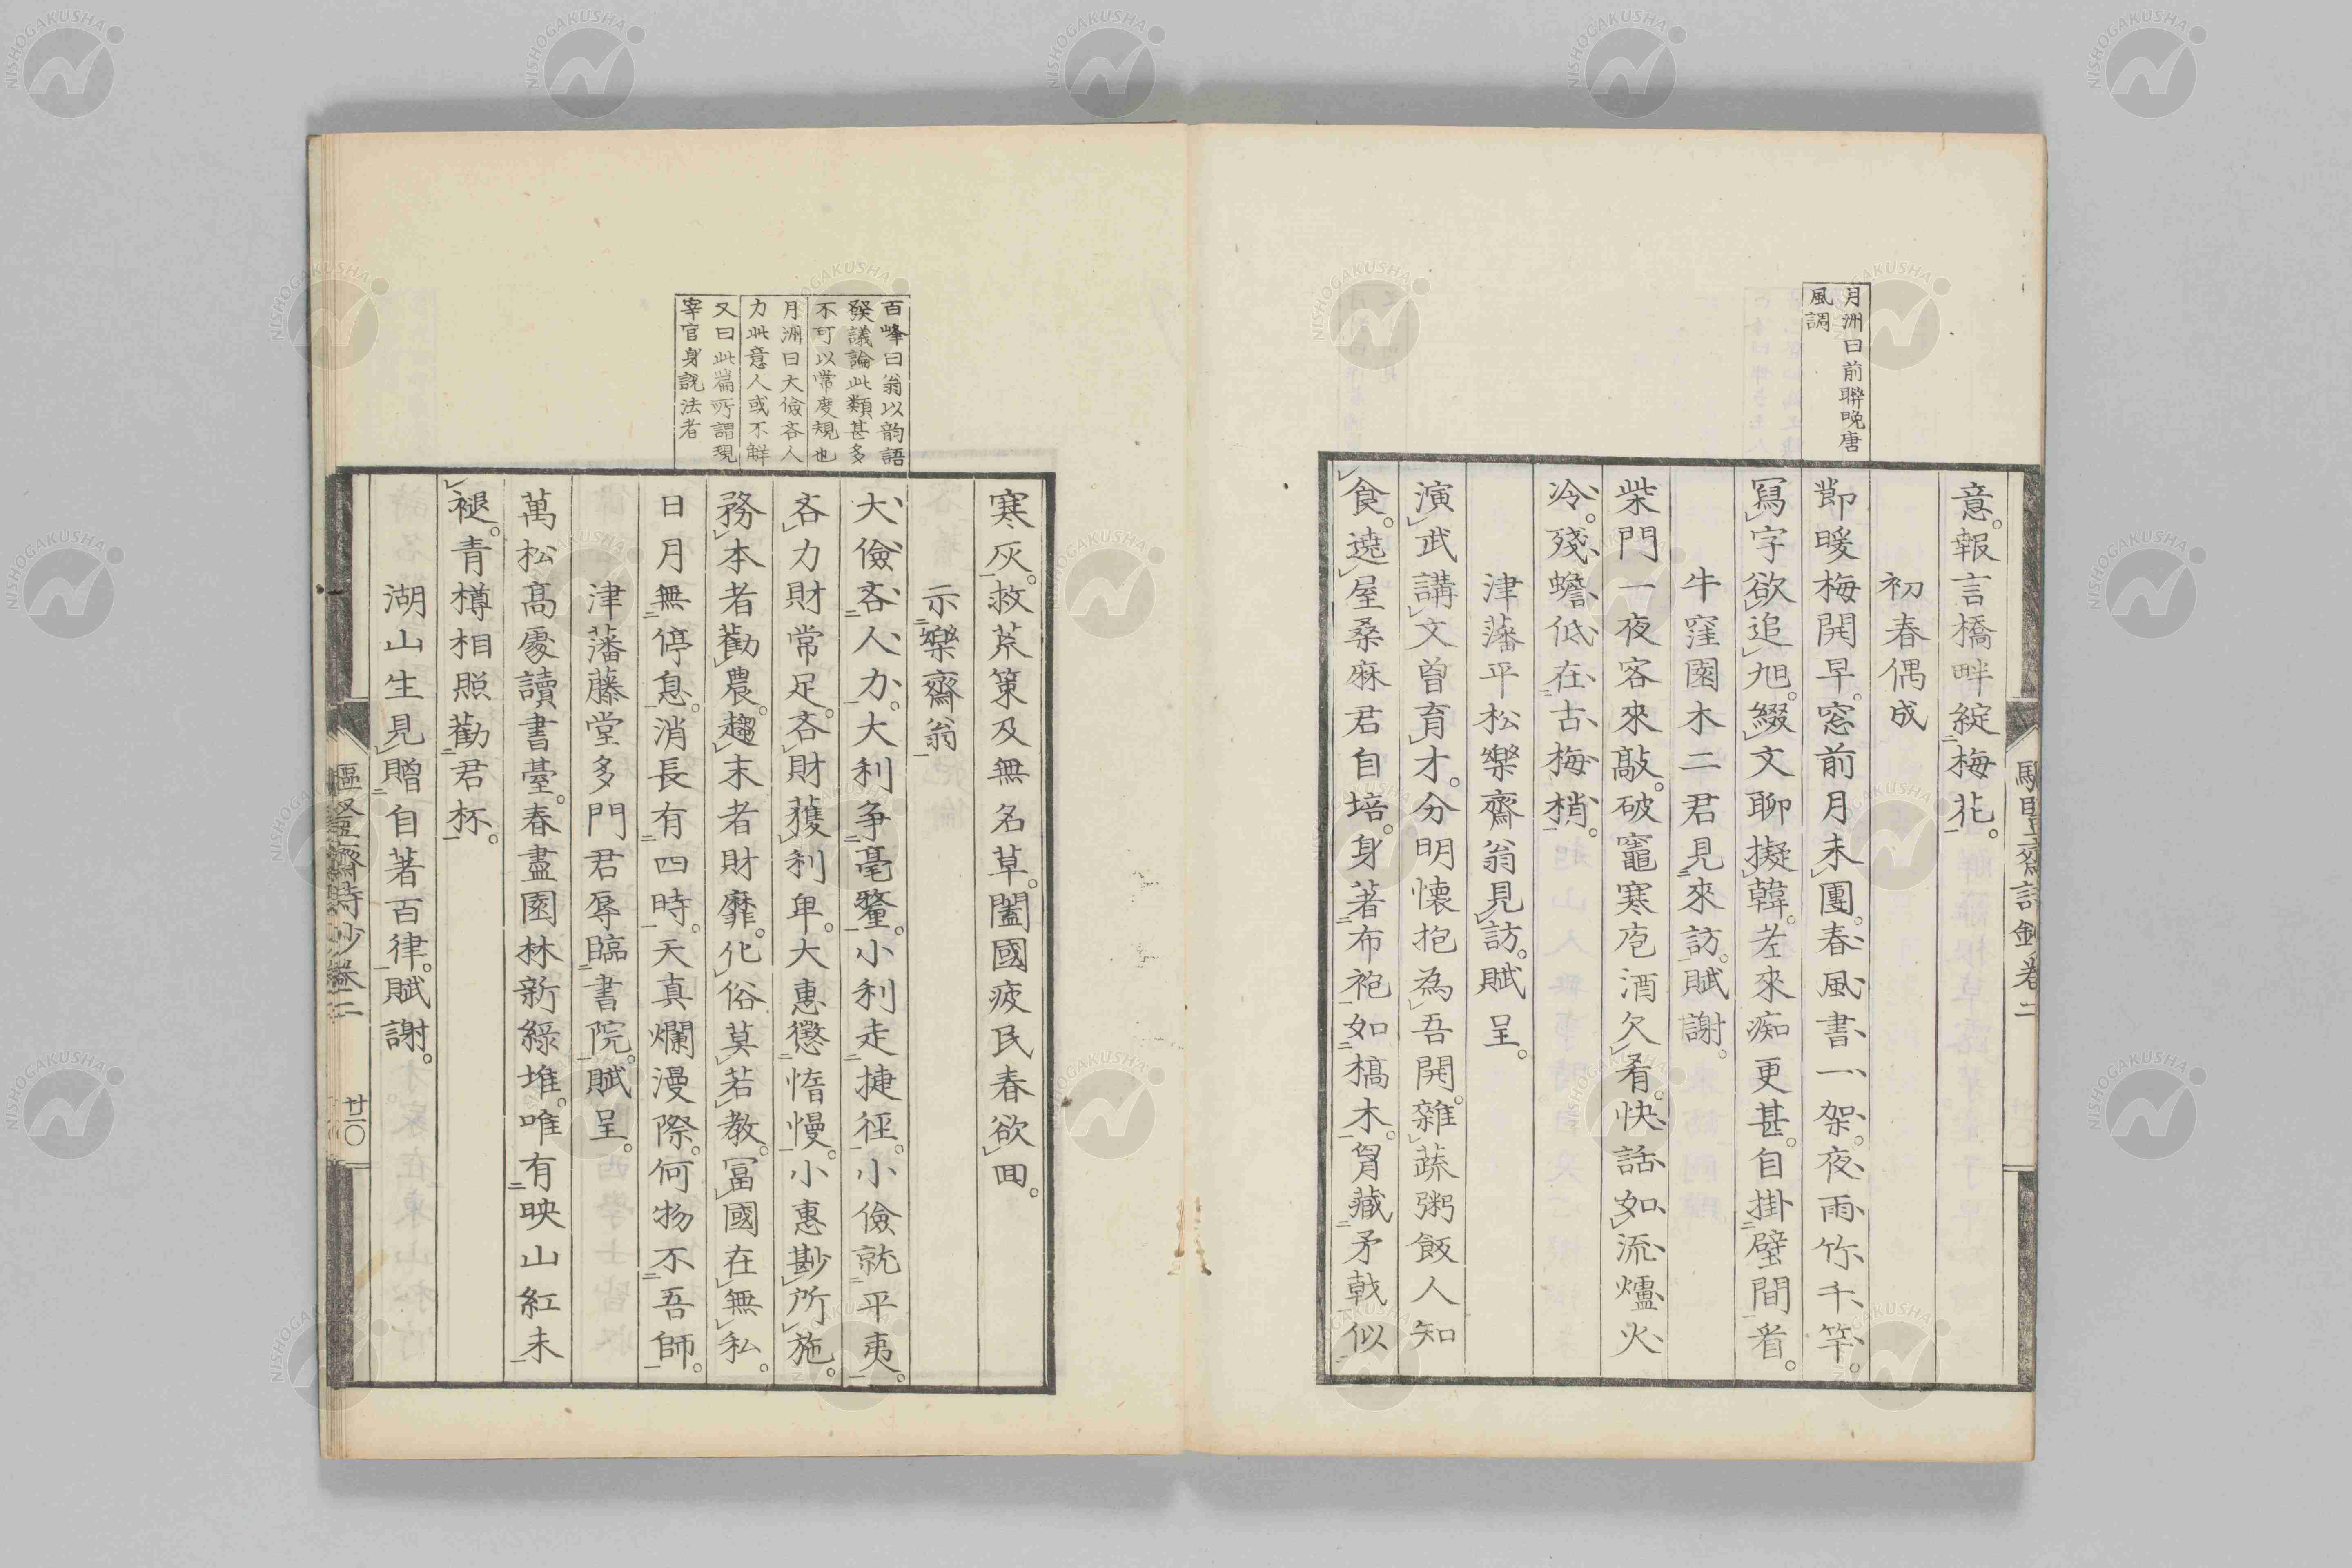 月洲曰前聯晚唐
風調
意。報言橋畔綻梅花。
初春偶成
節暖梅開早。窓前月未團。春風書一架。夜雨竹千竿。
冩字欲追旭。綴文聊擬韓。老來痴更甚。自掛壁間看。
牛窪園木二君見來訪。賦謝。
柴門一夜客來敲。破竈寒庖酒欠肴。快話如流爐火
冷。殘蟾低在古梅梢。
津藩平松樂齋翁見訪。賦呈。
演武講文曽育才。分明懐抱為吾開。雜蔬粥飯人知
食。遶屋桑麻君自培。身著布袍如槁木。胷藏矛戟似
百峰曰翁以韵語
發議論此類甚多
不可以常度規也
月洲曰大儉吝人
力此意人或不觧
又曰此篇所謂現
宰官身説法者
寒灰。救荒策及無名草。闔國疲民春欲回。
示樂齋翁
大儉吝人力。大利争毫釐。小利走捷徑。小儉就平夷。
吝力財常足。吝財獲利卑。大惠懲惰慢。小惠尠所施。
務本者勸農。趨末者財靡。化俗莫若教。冨國在無私。
日月無停息。消長有四時。天真爛漫際。何物不吾師。
津藩藤堂多門君辱臨書院。賦呈。
萬松髙處讀書臺。春盡園林新綠堆。唯有映山紅未
褪。青樽相照勸君杯。
湖山生見贈自著百律。賦謝。